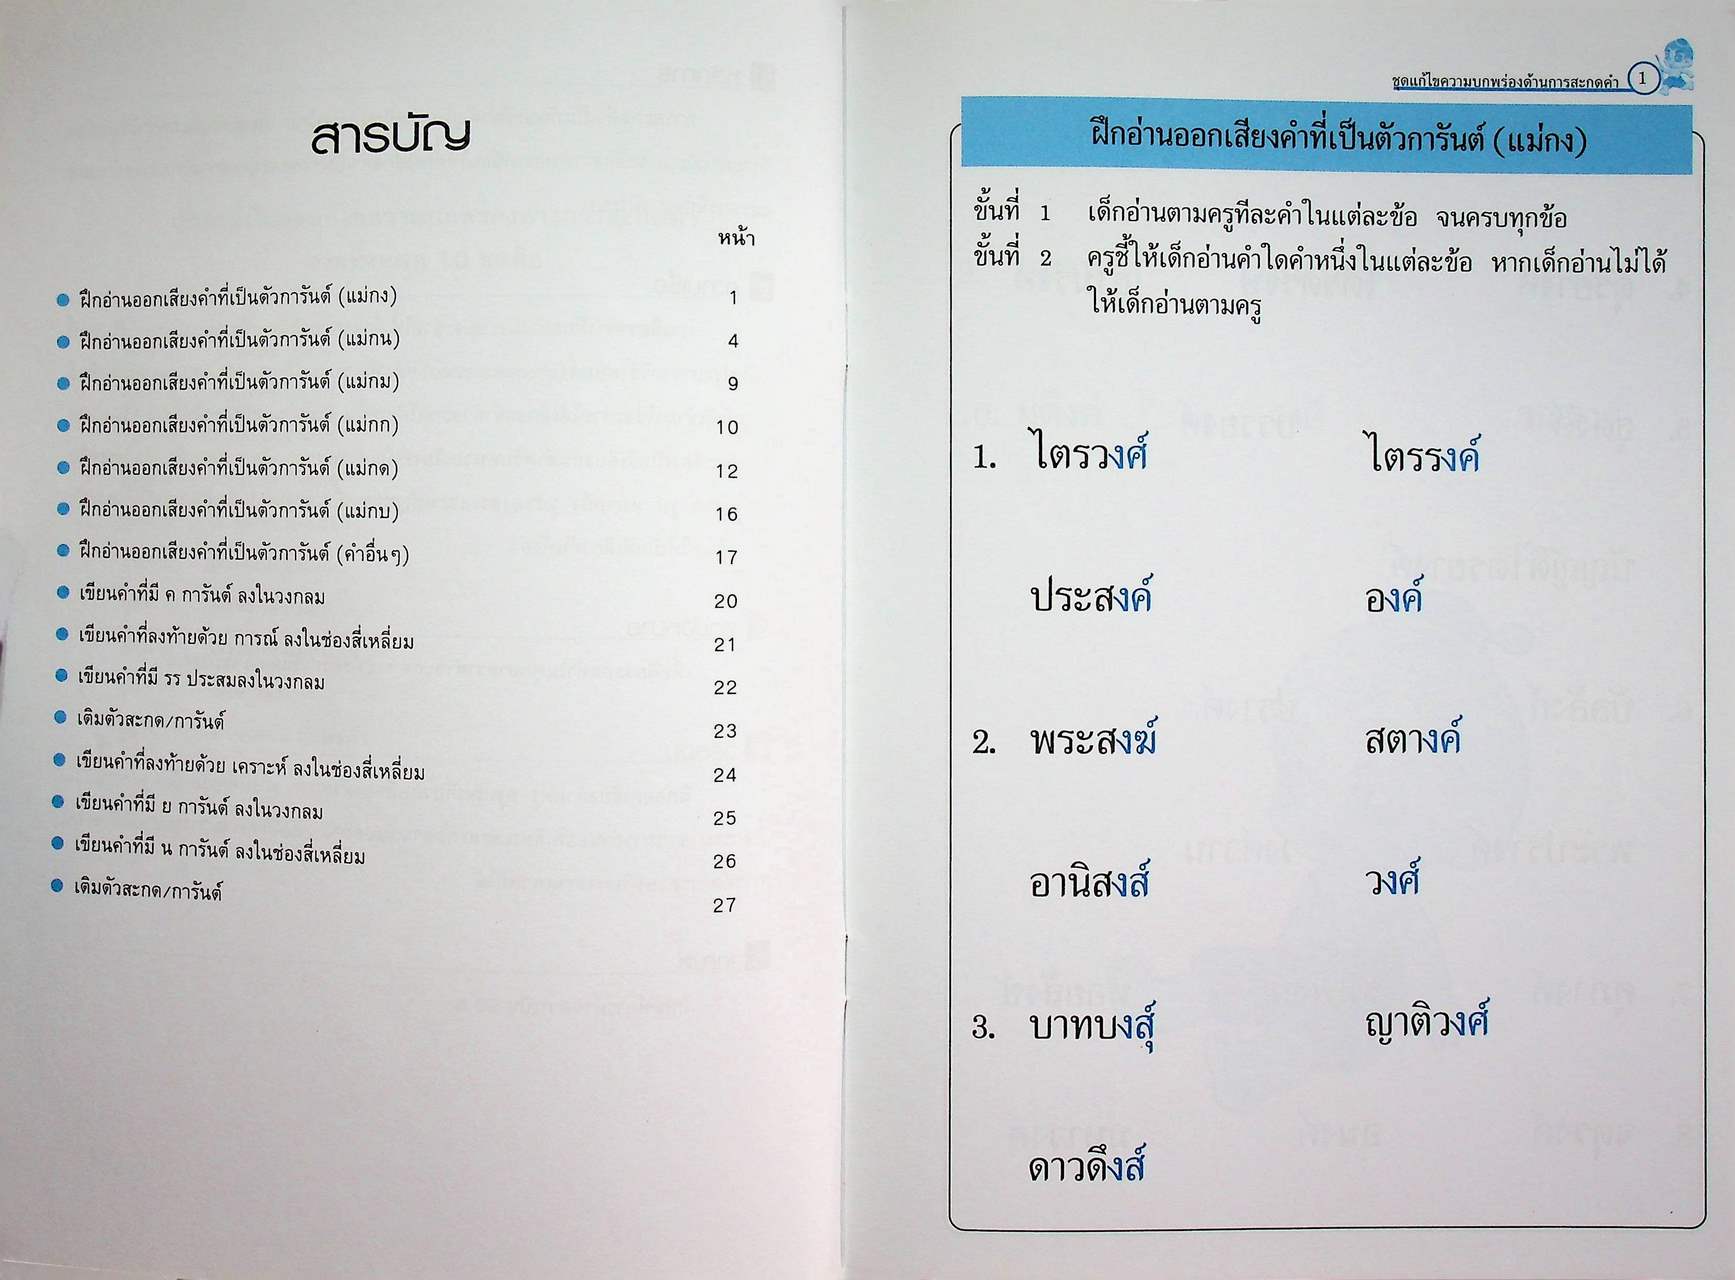 สารบัญ
หน้า
ฝึกอ่านออกเสียงคำที่เป็นตัวการันต์ (แม่กง) 1
ฝึกอ่านออกเสียงคำที่เป็นตัวการันต์ (แม่กน) 4
ฝึกอ่านออกเสียงคำที่เป็นตัวการันต์ (แม่กม) 9
ฝึกอ่านออกเสียงคำที่เป็นตัวการันต์ (แม่กก) 10
ฝึกอ่านออกเสียงคำที่เป็นตัวการันต์ (แม่กด) 12
ฝึกอ่านออกเสียงคำที่เป็นตัวการันต์ (แม่กบ) 16
ฝึกอ่านออกเสียงคำที่เป็นตัวการันต์ (คำอื่นๆ) 17
เขียนคำที่มี ค การันต์ ลงในวงกลม 20
เขียนคำที่ลงท้ายด้วย การณ์ ลงในช่องสี่เหลี่ยม 21
เขียนคำที่มี รร ประสมลงในวงกลม 22
เติมตัวสะกด/การันต์ 23
เขียนคำที่ลงท้ายด้วย เคราะห์ ลงในช่องสี่เหลี่ยม 24
เขียนคำที่มี ย การันต์ ลงในวงกลม 25
เขียนคำที่มี น การันต์ ลงในช่องสี่เหลี่ยม 26
เติมตัวสะกด/การันต์ 27
ชุดแก้ไขความบกพร่องด้านการสะกดคำ 1
ฝึกอ่านออกเสียงคำที่เป็นตัวการันต์ (แม่กง)
ขั้นที่ 1 เด็กอ่านตามครูทีละคำในแต่ละข้อ จนครบทุกข้อ
ขั้นที่ 2 ครูชี้ให้เด็กอ่านคำใดคำหนึ่งในแต่ละข้อ หากเด็กอ่านไม่ได้
ให้เด็กอ่านตามครู
1. ไตรวงศ์ ไตรรงค์
ประสงค์ องค์
2. พระสงฆ์ สตางค์
อานิสงส์ วงศ์
3. บาทบงสุ์ ญาติวงศ์
ดาวดึงส์